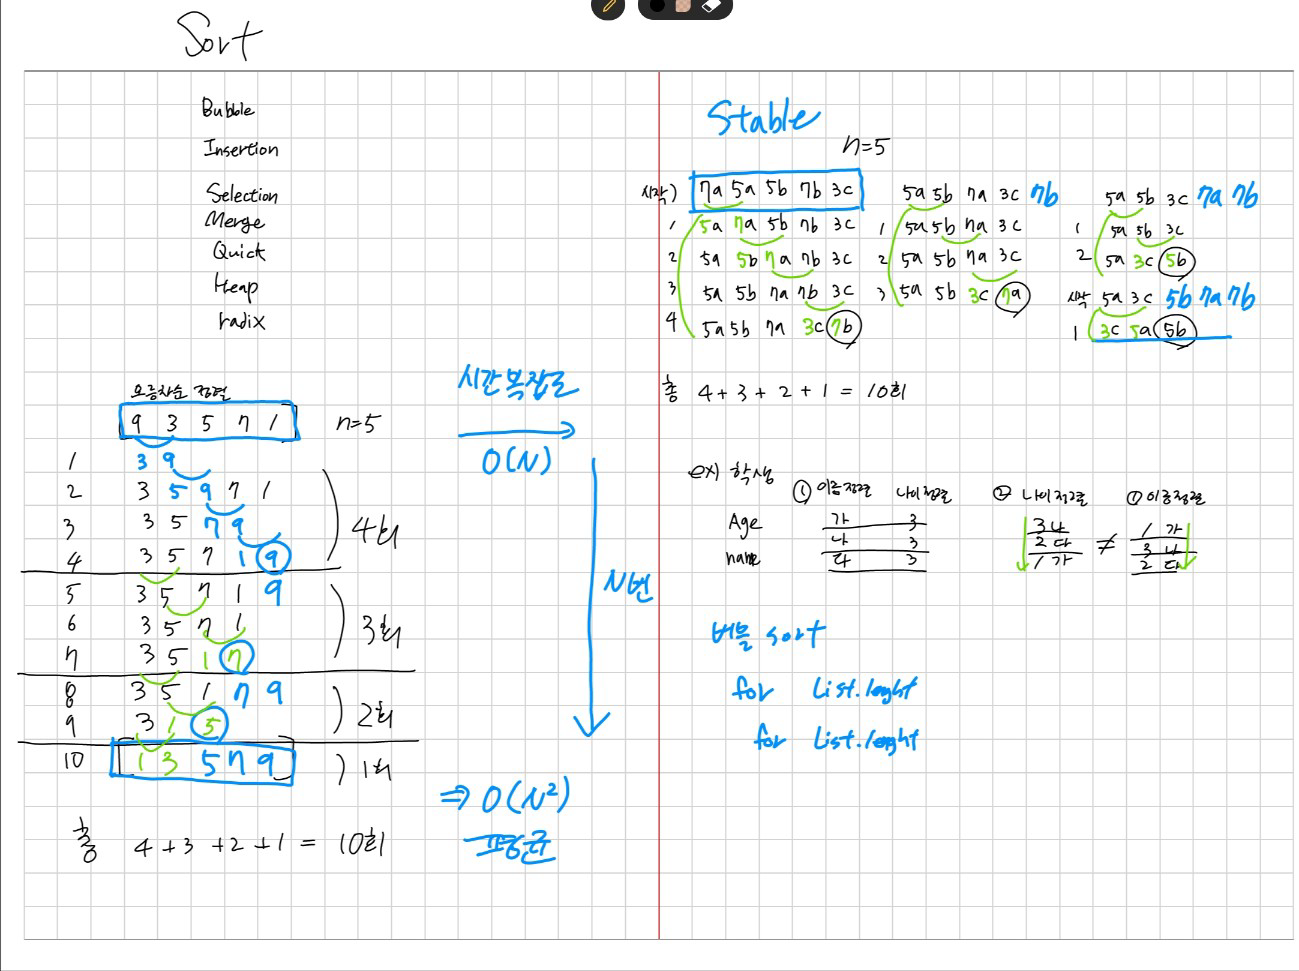 Sort
Bubble
Insertion
Selection
Merge
Quick
Heap
radix
오름차순 정렬
9 3 5 7 1
n=5
1 3 9
2 3 5 9 7 1
3 3 5 7 9
4 3 5 7 1 9
4회
5 3 5 7 1 9
6 3 5 7 1
7 3 5 1 7
3회
8 3 5 1 7 9
9 3 1 5
2회
10 [ 1 3 5 7 9 ]
1회
총 4+3+2+1 = 10회
시간복잡도
O(N)
N번
⇒ O(N²)
평균
Stable
n=5
시작) 7a 5a 5b 7b 3c
1 5a 7a 5b 7b 3c
2 5a 5b 7a 7b 3c
3 5a 5b 7a 7b 3c
4 5a 5b 7a 3c 7b
5a 5b 7a 3c 7b
1 5a 5b 7a 3c
2 5a 5b 7a 3c
3 5a 5b 3c 7a
5a 5b 3c 7a 7b
1 5a 5b 3c
2 5a 3c 5b
시작 5a 3c 5b 7a 7b
1 3c 5a 5b
총 4+3+2+1 = 10회
ex) 학생
Age
name
① 이름정렬 나이정렬
가 3
나 3
다 3
② 나이정렬
3 나
2 다
1 가
≠
① 이름정렬
1 가
3 나
2 다
버블 sort
for List.lenght
for List.lenght